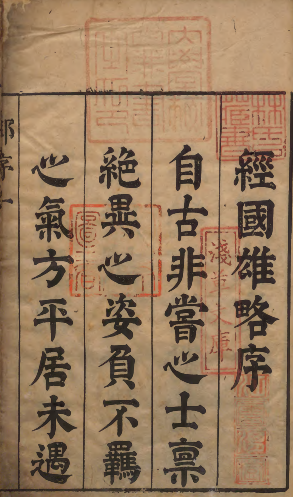 經國雄略序
自古非嘗之士禀
絶異之姿負不羈
之氣方平居未遇
鄭序一
林氏藏書
淺草文庫